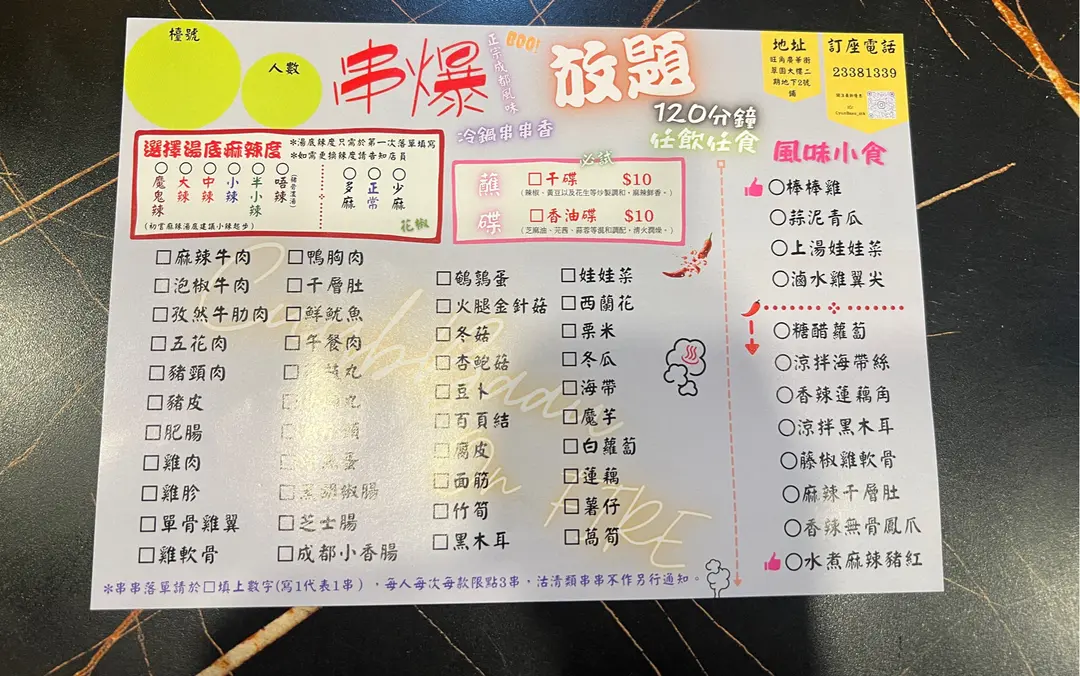 檯號
人數
串爆
正宗成都風味
BOO!
放題
120分鐘
任飲任食
冷鍋串串香
地址
旺角廣華街
草園大樓二
期地下2號
舖
訂座電話
23381339
選擇湯底麻辣度
*湯底辣度只需於第一次落單填寫
*如需更換辣度請告知店員
○魔鬼辣
○大辣
○中辣
○小辣
○半小辣
○唔辣
○多麻
○正常
○少麻
花椒
(初嘗麻辣湯底建議小辣起步)
必試
蘸碟
□干碟 $10
(辣椒、黃豆以及花生等炒製調和,麻辣鮮香。)
□香油碟 $10
(芝麻油、芫茜、蒜蓉等混和調配,清火潤燥。)
□麻辣牛肉
□泡椒牛肉
□孜然牛肋肉
□五花肉
□豬頸肉
□豬皮
□肥腸
□雞肉
□雞胗
□單骨雞翼
□雞軟骨
□鴨胸肉
□千層肚
□鮮魷魚
□午餐肉
□黑胡椒腸
□芝士腸
□成都小香腸
□鵪鶉蛋
□火腿金針菇
□冬菇
□杏鮑菇
□豆卜
□百頁結
□腐皮
□面筋
□竹筍
□黑木耳
□娃娃菜
□西蘭花
□粟米
□冬瓜
□海帶
□魔芋
□白蘿蔔
□蓮藕
□薯仔
□萵筍
風味小食
○棒棒雞
○蒜泥青瓜
○上湯娃娃菜
○滷水雞翼尖
○糖醋蘿蔔
○涼拌海帶絲
○香辣蓮藕角
○涼拌黑木耳
○藤椒雞軟骨
○麻辣千層肚
○香辣無骨鳳爪
○水煮麻辣豬紅
On FIRE
*串串落單請於□填上數字(寫1代表1串),每人每次每款限點3串,沽清類串串不作另行通知。